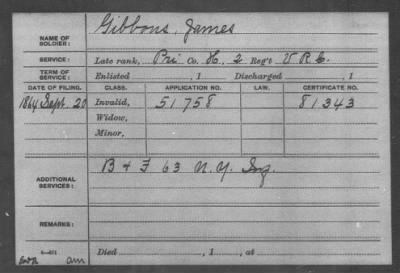 NAME OF SOLDIER: Gibbons, James
SERVICE: Late rank, Pri Co. H, 2 Reg't V R C.
TERM OF SERVICE: Enlisted , 1 Discharged , 1
DATE OF FILING. CLASS. APPLICATION NO. LAW. CERTIFICATE NO.
1864 Sept. 20 Invalid, 51758 81343
Widow,
Minor,
ADDITIONAL SERVICES: B & F 63 N.Y. Inf.
REMARKS:
Died , 1 , at
am